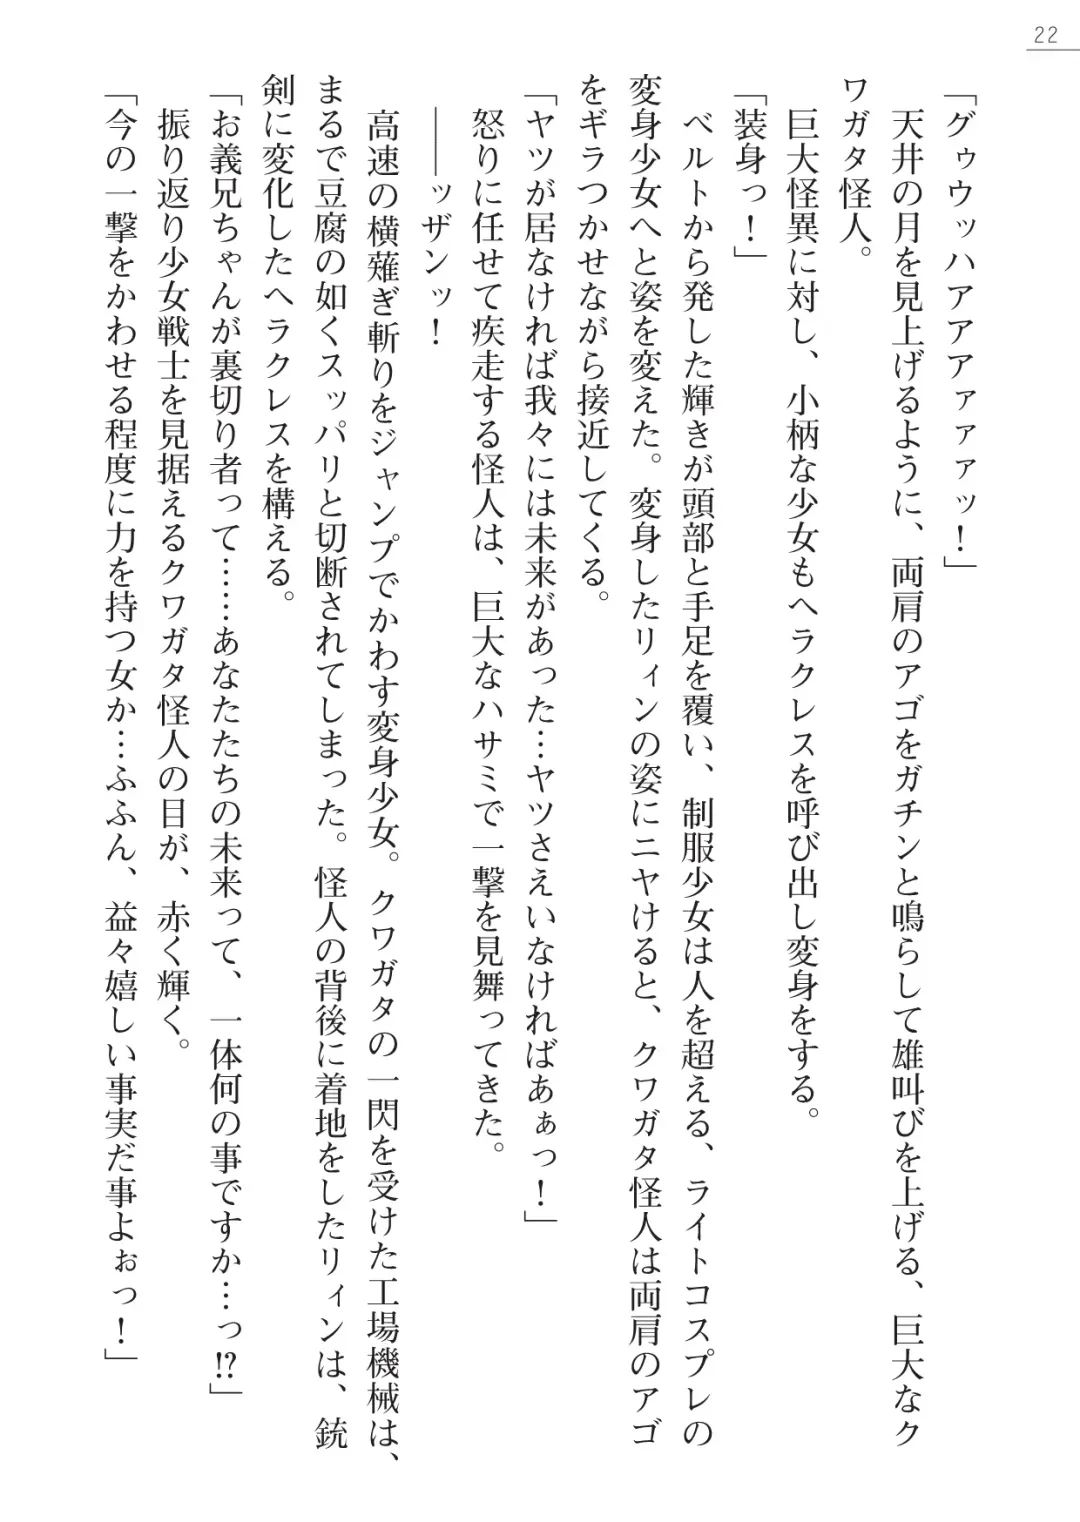 22
「グゥウッハアアアァァァッ！」
　天井の月を見上げるように、両肩のアゴをガチンと鳴らして雄叫びを上げる、巨大なク
ワガタ怪人。
　巨大怪異に対し、小柄な少女もヘラクレスを呼び出し変身をする。
「装身っ！」
　ベルトから発した輝きが頭部と手足を覆い、制服少女は人を超える、ライトコスプレの
変身少女へと姿を変えた。変身したリィンの姿にニヤけると、クワガタ怪人は両肩のアゴ
をギラつかせながら接近してくる。
「ヤツが居なければ我々には未来があった…ヤツさえいなければあぁっ！」
　怒りに任せて疾走する怪人は、巨大なハサミで一撃を見舞ってきた。
　――ッザンッ！
　高速の横薙ぎ斬りをジャンプでかわす変身少女。クワガタの一閃を受けた工場機械は、
まるで豆腐の如くスッパリと切断されてしまった。怪人の背後に着地をしたリィンは、銃
剣に変化したヘラクレスを構える。
「お義兄ちゃんが裏切り者って……あなたたちの未来って、一体何の事ですか…っ!?」
　振り返り少女戦士を見据えるクワガタ怪人の目が、赤く輝く。
「今の一撃をかわせる程度に力を持つ女か…ふふん、益々嬉しい事実だ事よぉっ！」